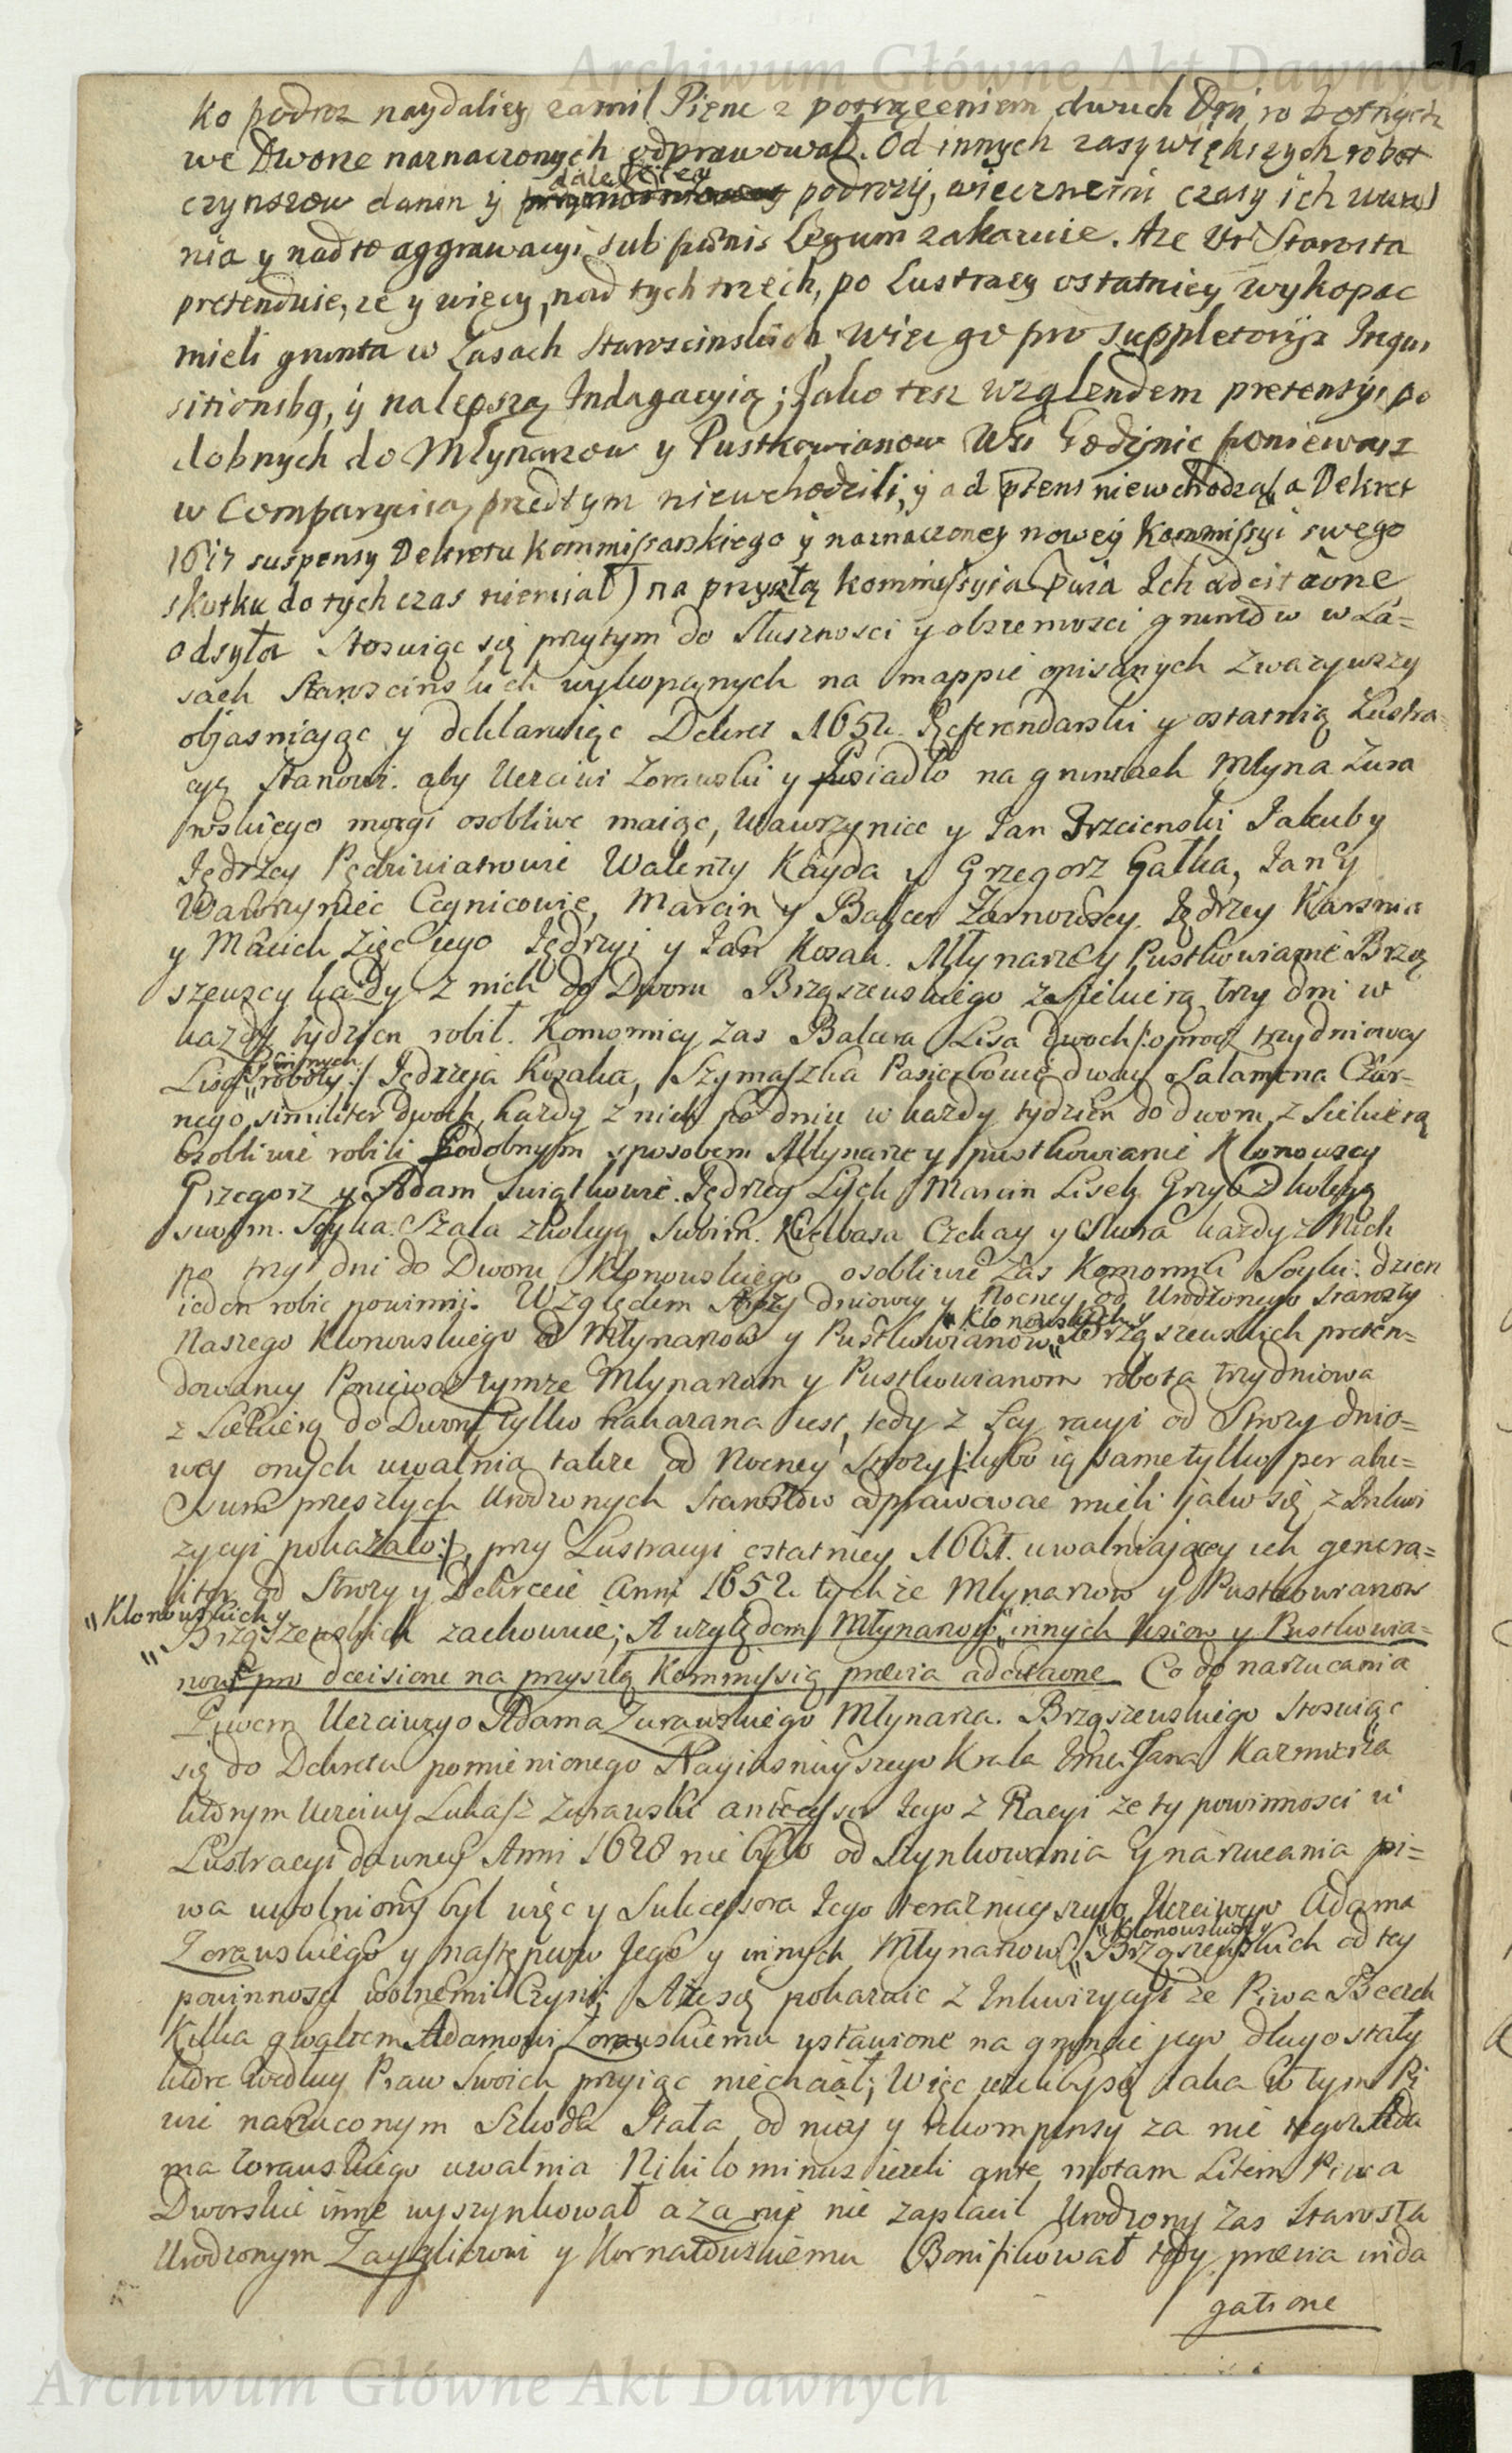 Archiwum Główne Akt Dawnych
ko podroz naydaliey zamil Pięnc z potrąceniem dwuch Dni robotnych
we Dworze naznaczonych odprawował. Od innych zasy większych robot
daleksżey
czynszow danin ÿ podrożÿ, wiecznemi czasy ich uwal
nia y nadto aggrawacyi sub pœnis Legum zakazuie. Aże Ur Starosta
pretenduie, ze y więcy, nad tych trzech, po Lustracy ostatniey wykopac
mieli grunta w Lasach Staroscinskich, więc go pro suppletoryą Inqui
sitionską, ÿ nalepszą Indagacyią; Jako tesz wzglendem pretensyi po
dobnych do Młynarzow y Pustkowianow Wsi Godÿnic poniewasz
w Comparycią przedtym niewchodzili, ÿ ad pręns niewchodzą (a Dekret
suspensy Dekretu Kommissarskiego ÿ naznaczoney noweÿ Kommissyi swego
skutku do tych czas niemiał) na przyszłą kommissyią Ich adcitaõne
odsyła Stosuiąc się przytym do słusznosci y obszernosci gruntow w La=
sach Starościnskich wykopanych na mappie opisanych zwazywszy
objasniaiąc y deklaruiąc Dekret 1652. Referendarski y ostatnią Lustra
cyą stanowi. aby Ucciwi Zorawski y Posiadło na gruntach Młyna Żura
wskiego morgi osobliwe maiąc, Wawrzyniec y Jan Trzcienski Jakub y
Jędrzey Pędziwiatrowie Walenty Kayda y Grzegorz Gałka, Jan y
Wawrzyniec Cegnicowie, Marcin y Balcer Żarnowscy. Jędrzey Karsnia
y Maciek Zięc iego Jędrzyi y Jan Kozak. Młynarze y Pustkowianie Brzą
szewscy każdy z nich do Dworu Brząszewskiego z Siekierą trzy dni w
każdy tydzien robił. Komornicy zas Balcera Lisa dwoch /: oprocz trzydniowey
Lisa roboty :/ Jędrzeja Kozaka, Szymaszka Pasierbowie dway Salamona Czar=
nego, similiter dwoch, kazdy z nich po dniu w kazdy tydzien do dworu z Siekierą
osobliwie robili Podobnym sposobem Młynarze y pustkowianie Klonowscy
Grzegorz y Adam Swiątkowie. Jędrzey Lych Marcin Lisek Grzyb z kolegą
swoim. Soyka. Szala z kolegą Swoim. Kiełbasa Czekay y Skura kazdy z nich
po trzy dni do Dworu Klonowskiego osobliwie zas Komornik Soyki. dzien
ieden robic powinnij. Względem Strózy dniowey y Nocney od Urodzonego Starosty
"Klonowskich y
Naszego Klonowskiego od Młynarzow y Pustkowianow" Brząszewskich preten=
dowaney Poniewaz tymze Młynarzom y Pustkowianom robota trzydniowa
z Siekierą do Dworu tylko kakazana iest, tedy z tey racyi od Strozy dnio=
wey onych uwalnia takze od Nocney Strozy /: lubo ią same tylko per abu=
sum przeszłych Urodzonych Starostow odprawowac mieli jako się z Inkwi
zycyi pokazało :/, przy Lustracyi ostatniey 1661. uwalniaiący ich genera=
liter od Strozy y Dekrecie Anni 1652 tychze Młynarzow y Pustkowianow
"Klonowskich y
" Brząszewskich zachowuie; A względem Młynarzow innych Wsiow y Pustkowia=
now pro decisione na przyszłą Kommissią prævia adcitaõne Co do narzucania
Piwem Ucciwego Adama Zurawskiego Młynarza. Brząszewskiego Stosuiąc
się do Dekretu pomienionego Nayiasnieyszego Krola Jmci Jana Kazmierza
ktorym Ucciwy Lukasz Zurawski antecessor Jego z Racyi ze ty powinnosci w
Lustracyi dawney Anni 1628 nie było od szynkowania y narzucania pi=
wa uwolniony był więc y Sukcessora Jego teraznieyszego Ucciwego Adama
"Klonowskich y
Zorawskiego y następcow Jego y innych Młynarzow" Brząszewskich od tey
powinnosci wolnemi Czyni; Aże się pokazuie z Inkwizycyi ze Piwa Beczek
Kilka gwałtem Adamowi Zorawskiemu ustawione na gruncie jego długo stały
ktore według Praw Swoich przyiąc niechciał; Więc jezeliby się iaka w tym Pi
wie narzuconym Szkoda Stała, od niey y rekompensy za nie tegoz Ada
ma Zorawskiego uwalnia Nihilominus iezeli ante motam Litem Piwa
Dworskie inne wyszynkował a za nie nie zapłacił Urodzony zas Starosta
Urodzonym Zayglicowi y Kornatowskiemu Bonifikował tedy prævia inda
gatione
Archiwum Główne Akt Dawnych